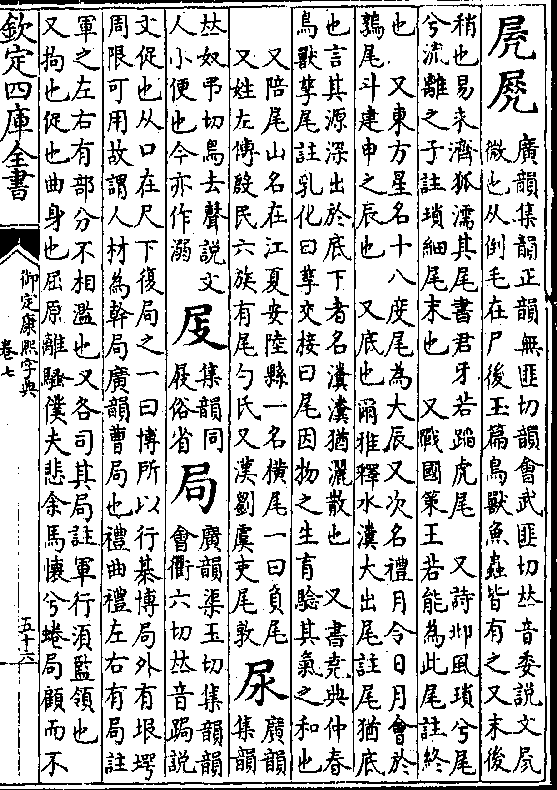 廣韻集韻正韻無匪切韻會武匪切𠀤音委說文
微也从倒毛在尸後玉篇鳥獸魚蟲皆有之又末後
稍也易未濟狐濡其尾書君牙若蹈虎尾　又詩邶風瑣兮尾
兮流離之子註瑣細尾末也　又戰國策王若能為此尾註終
也　又東方星名十八度尾為大辰又次名禮月令日月會於
鶉尾斗建申之辰也　又底也爾雅釋水瀵大出尾註尾猶底
也言其源深出於底下者名瀵瀵猶灑散也　又書堯典仲春
鳥獸孳尾註乳化曰孳交接曰尾因物之生有驗其氣之和也
又陪尾山名在江夏安陸縣一名橫尾一曰負尾
又姓左傳殷民六族有尾勺氏又漢劉虞吏尾敦
尿
廣韻
集韻
𠀤奴弔切鳥去聲說文
人小便也今亦作溺
集韻同
屐俗省
局
廣韻渠玉切集韻韻
會衢六切𠀤音跼說
文促也从口在尺下復局之一曰博所以行棊博局外有垠堮
周限可用故謂人材為幹局廣韻曹局也禮曲禮左右有局註
軍之左右有部分不相濫也又各司其局註軍行須監領也
又拘也促也曲身也屈原離騷僕夫悲余馬懷兮蜷局顧而不
欽定四庫全書
御定康熙字典
卷七
五十六